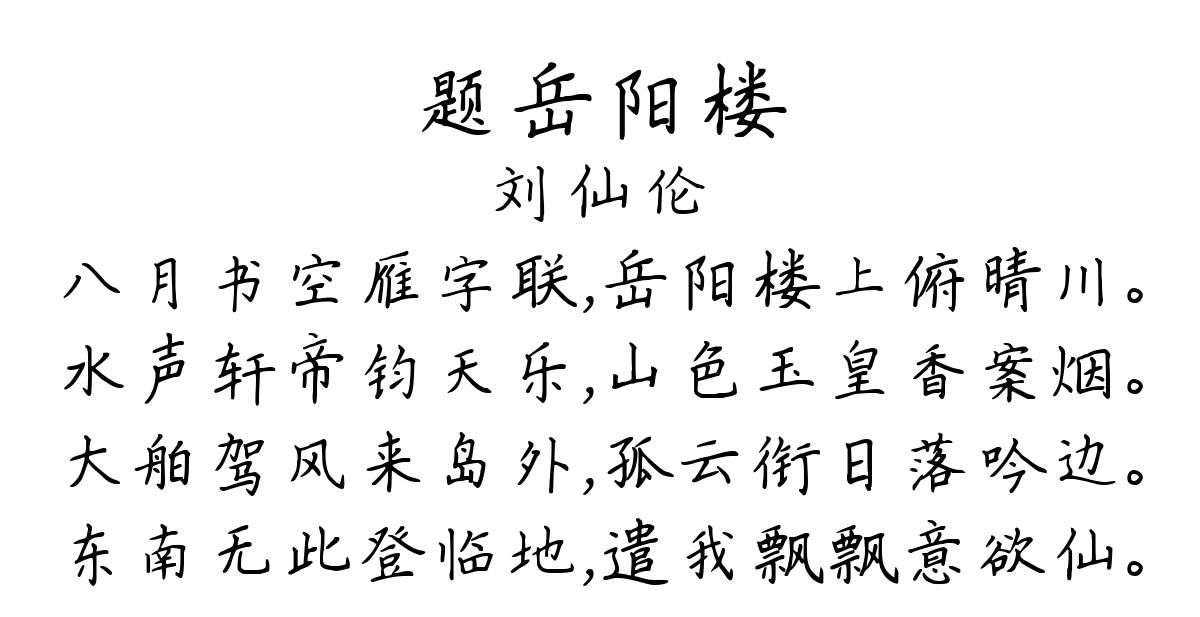 题岳阳楼
刘仙伦
八月书空雁字联,岳阳楼上俯晴川。
水声轩帝钧天乐,山色玉皇香案烟。
大舶驾风来岛外,孤云衔日落吟边。
东南无此登临地,遣我飘飘意欲仙。